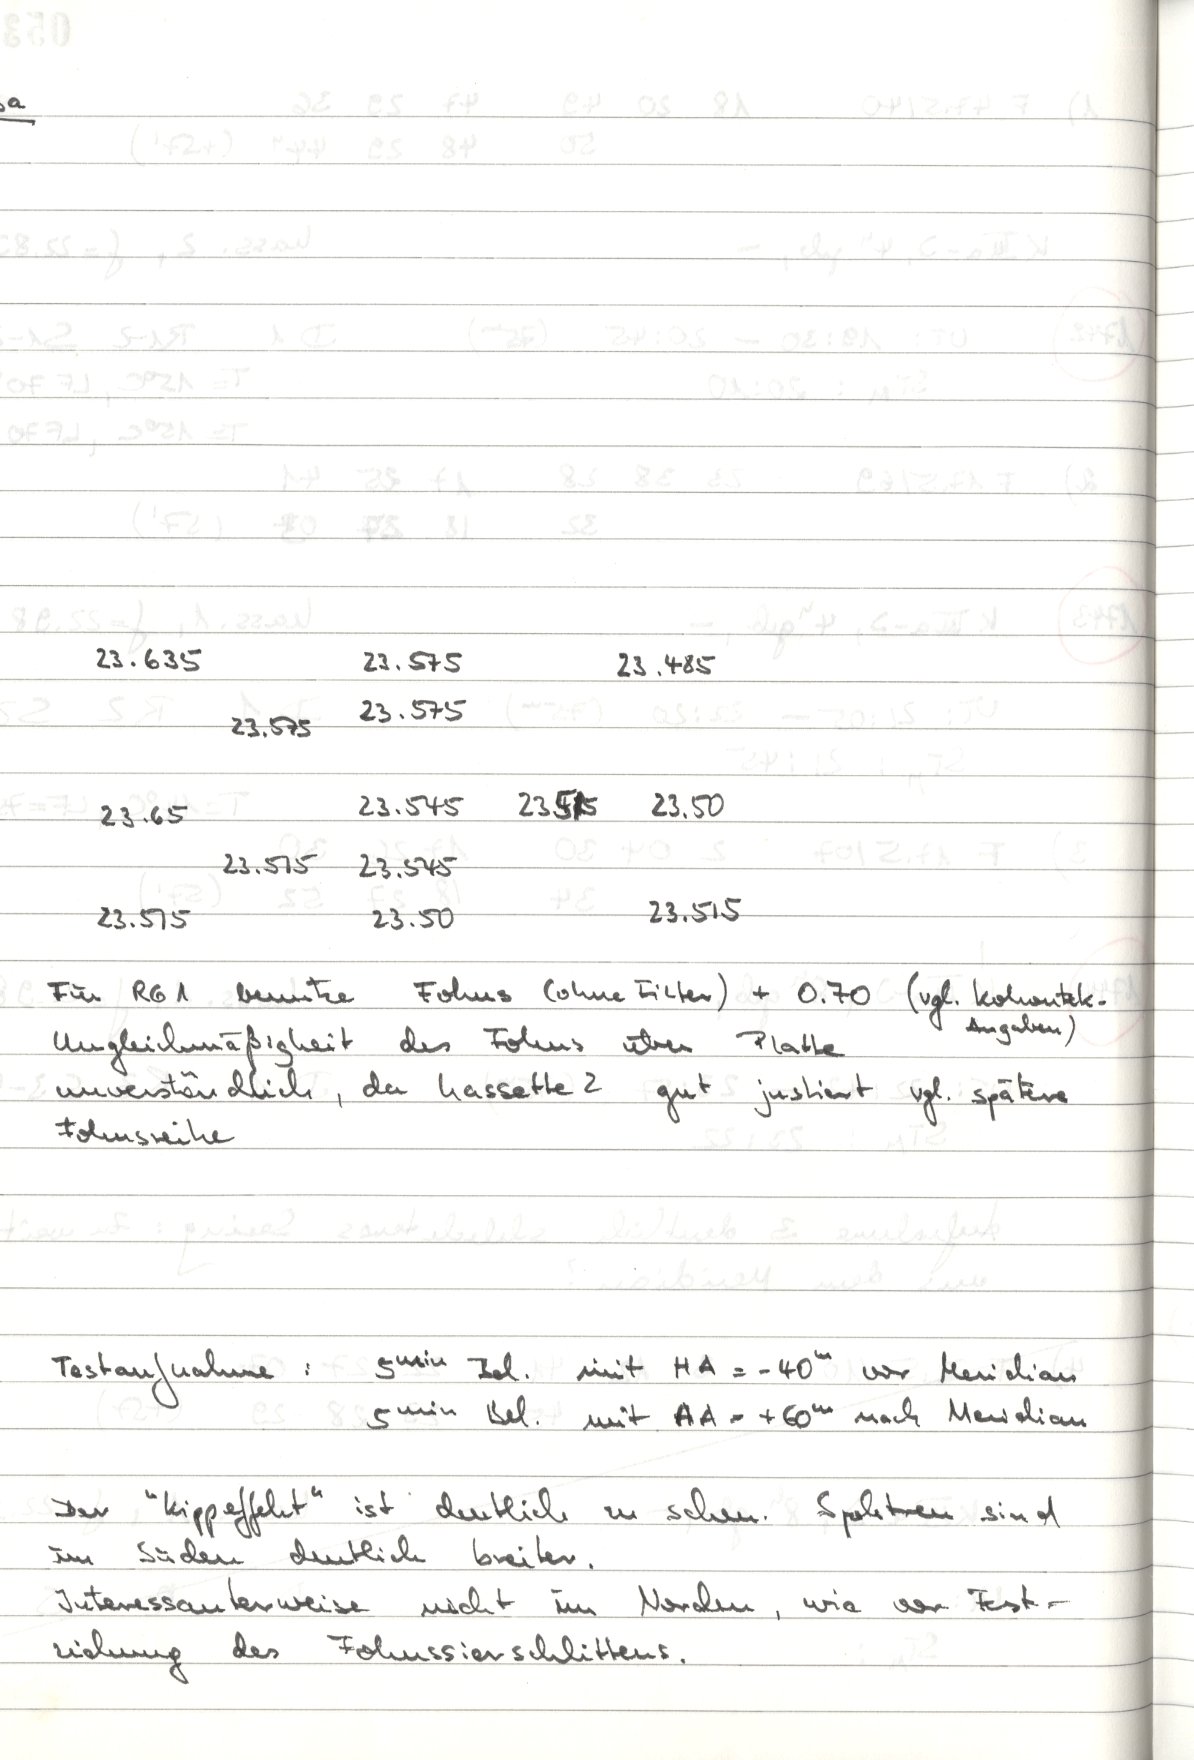 23.635 23.575 23.485
23.575 23.575
23.65 23.545 23.50
23.515 23.545
23.515 23.50 23.515
Für RG1 benutze Fokus (ohne Filter) + 0.70 (vgl. Kohoutek-
Angaben)
Ungleichmäßigkeit des Fokus über Platte
unverständlich, da Kassette 2 gut justiert vgl. spätere
Fokusreihe
Testaufnahme : 5min Bel. mit HA = -40m vor Meridian
5min Bel. mit HA = +60m nach Meridian
Der "Kippeffekt" ist deutlich zu sehen. Spektren sind
im Süden deutlich breiter.
Interessanterweise nicht im Norden, wie vor Fest-
ziehung des Fokussierschlittens.